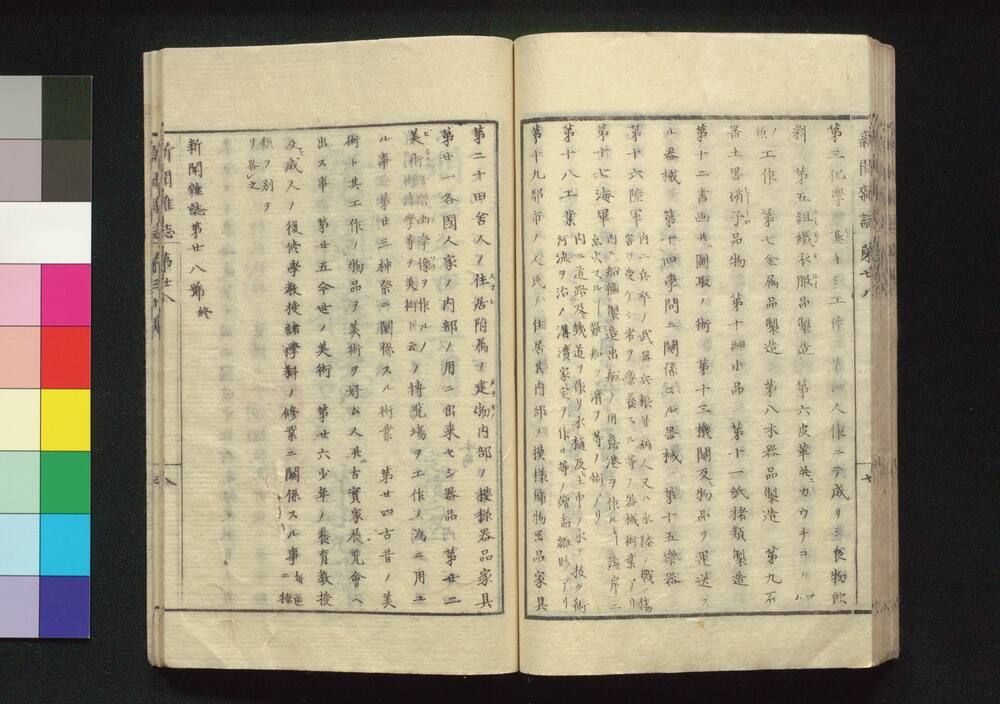 新聞雜誌第廿八
七
第三化學ニ基キシ工作 第四人作ニテ成リシ食物飲
料 第五組織衣服品製造 第六皮革并ニカウチヨクム
ノ工作 第七金属品製造 第八木器品製造 第九石
器土器硝子品物 第十細小品 第十一紙楮類製造
第十二書画并圖取ノ術 第十三機關及物品ヲ運送ス
ル器械 第十四學問ニ關係スル器械 第十五樂器
第十六陸軍 内ニ兵卒ノ武器兵粮并病人又ハ水陸ノ戰ニ傷
害ヲ受ケシ者ヲ療養スル等ノ器械術業アリ
第十七海軍 内ニ船舶製造出船ノ用意港ヲ作ル 海岸ニ
点火スル 難船ヲ濟フ等ノ術アリ
第十八工業 内ニ道路及鐵道ヲ作リ水桶及土中ノ水ヲ抜ク術
河流ヲ治ノ溝瀆家室ヲ作ル等ノ繪圖雛形アリ
第十九郡市ノ人民ノ住居其内部ノ模樣飾物器品家具
第二十田舎人ノ住居附属ノ建物内部ノ模樣器品家具
第廿一各國人家ノ内部ノ用ニ出来セシ器品 第廿二
美術 畫像ヲ作ルノ術 學等ヲ美術ト云 ノ博覧場ヲ工作ノ為ニ用ユ
ル事 第廿三神祭ニ關係スル術業 第廿四古昔ノ美
術ト其工作ノ物品ヲ美術ヲ好ム人并古實家展覧會ヘ
出ス事 第廿五今世ノ美術 第廿六少年ノ養育教授
及成人ノ後修學教授諸學科ノ修業ニ關係スル事 每區ニ種
類ヲ別ツ
リ畧之
新聞雜誌第廿八號 終
新聞雜誌 第廿八
八